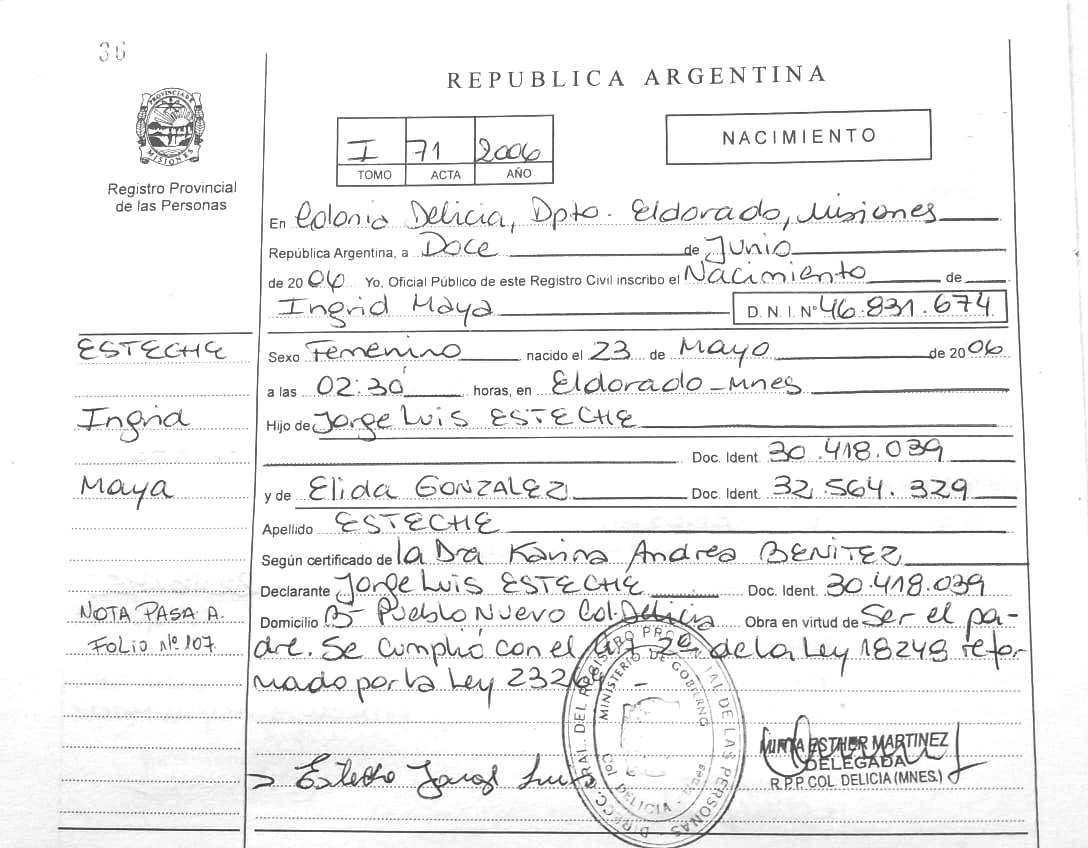 36
REPUBLICA ARGENTINA
PROVINCIA DE MISIONES
Registro Provincial
de las Personas
I 71 2006
TOMO ACTA AÑO
NACIMIENTO
En Colonia Delicia, Dpto. Eldorado, Misiones
República Argentina, a Doce de Junio
de 2006 Yo, Oficial Público de este Registro Civil inscribo el Nacimiento de
Ingrid Maya D. N. I. Nº 46.831.674
ESTECHE Sexo Femenino nacido el 23 de Mayo de 2006
a las 02:30 horas, en Eldorado - Mnes
Ingrid Hijo de Jorge Luis ESTECHE
Doc. Ident. 30.418.039
Maya y de Elida GONZALEZ Doc. Ident. 32.564.329
Apellido ESTECHE
Según certificado de la Dra Karina Andrea BENITEZ
Declarante Jorge Luis ESTECHE Doc. Ident. 30.418.039
NOTA PASA A. Domicilio Bº Pueblo Nuevo Col. Delicia Obra en virtud de Ser el pa-
FOLIO Nº 107. dre. Se cumplió con el art. de la Ley 18248 refor
mado por la Ley 23264 -
DIRECC. GRAL. DEL REGISTRO PROVINCIAL DE LAS PERSONAS
MINISTERIO DE GOBIERNO
Col. DELICIA - Mnes
MIRTA ESTHER MARTINEZ
DELEGADA
R.P.P. COL. DELICIA (MNES.)
Esteche Jorge Luis